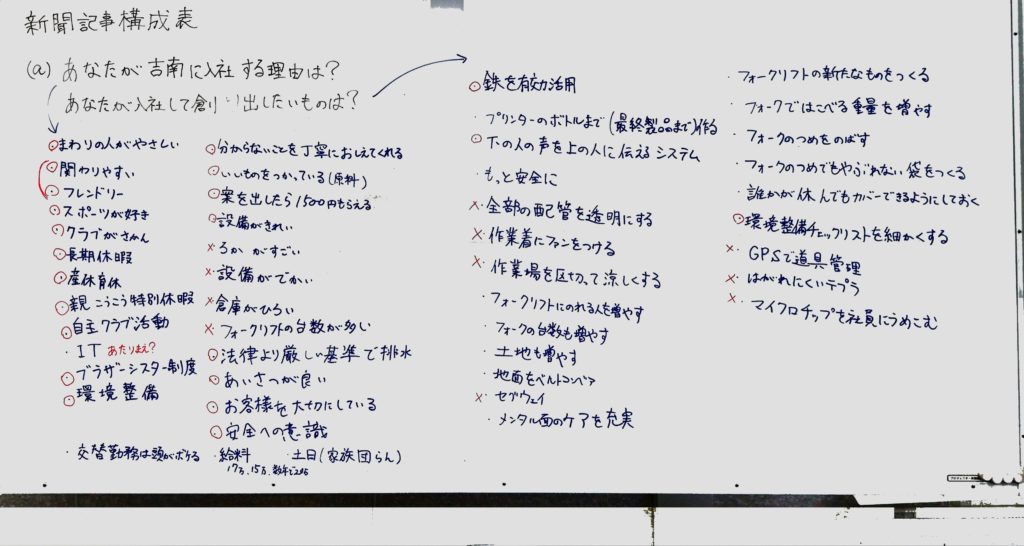 新聞記事構成表
(a) あなたが吉南に入社する理由は?
あなたが入社して創り出したいものは?
まわりの人がやさしい
関わりやすい
フレンドリー
スポーツが好き
クラブがさかん
長期休暇
産休育休
親こうこう特別休暇
自主クラブ活動
・IT あたりまえ?
ブラザーシスター制度
環境整備
・交替勤務は頭がボケる
分からないことを丁寧におしえてくれる
いいものをつかっている(原料)
案を出したら1500円もらえる
設備がきれい
× ろか がすごい
× 設備がでかい
× 倉庫がひろい
× フォークリフトの台数が多い
法律より厳しい基準で排水
あいさつが良い
お客様を大切にしている
安全への意識
・給料 ・土日(家族団らん)
17万、15万、
鉄を有効活用
・プリンターのボトルまで(最終製品まで)作る
下の人の声を上の人に伝えるシステム
・もっと安全に
× 全部の配管を透明にする
× 作業着にファンをつける
× 作業場を区切って涼しくする
・フォークリフトにのれる人を増やす
・フォークの台数も増やす
・土地も増やす
・地面をベルトコンベア
× セグウェイ
・メンタル面のケアを充実
・フォークリフトの新たなものをつくる
・フォークではこべる重量を増やす
・フォークのつめをのばす
・フォークのつめでもやぶれない袋をつくる
・誰かが休んでもカバーできるようにしておく
環境整備チェックリストを細かくする
× GPSで道具管理
× はがれにくいテプラ
× マイクロチップを社員にうめこむ